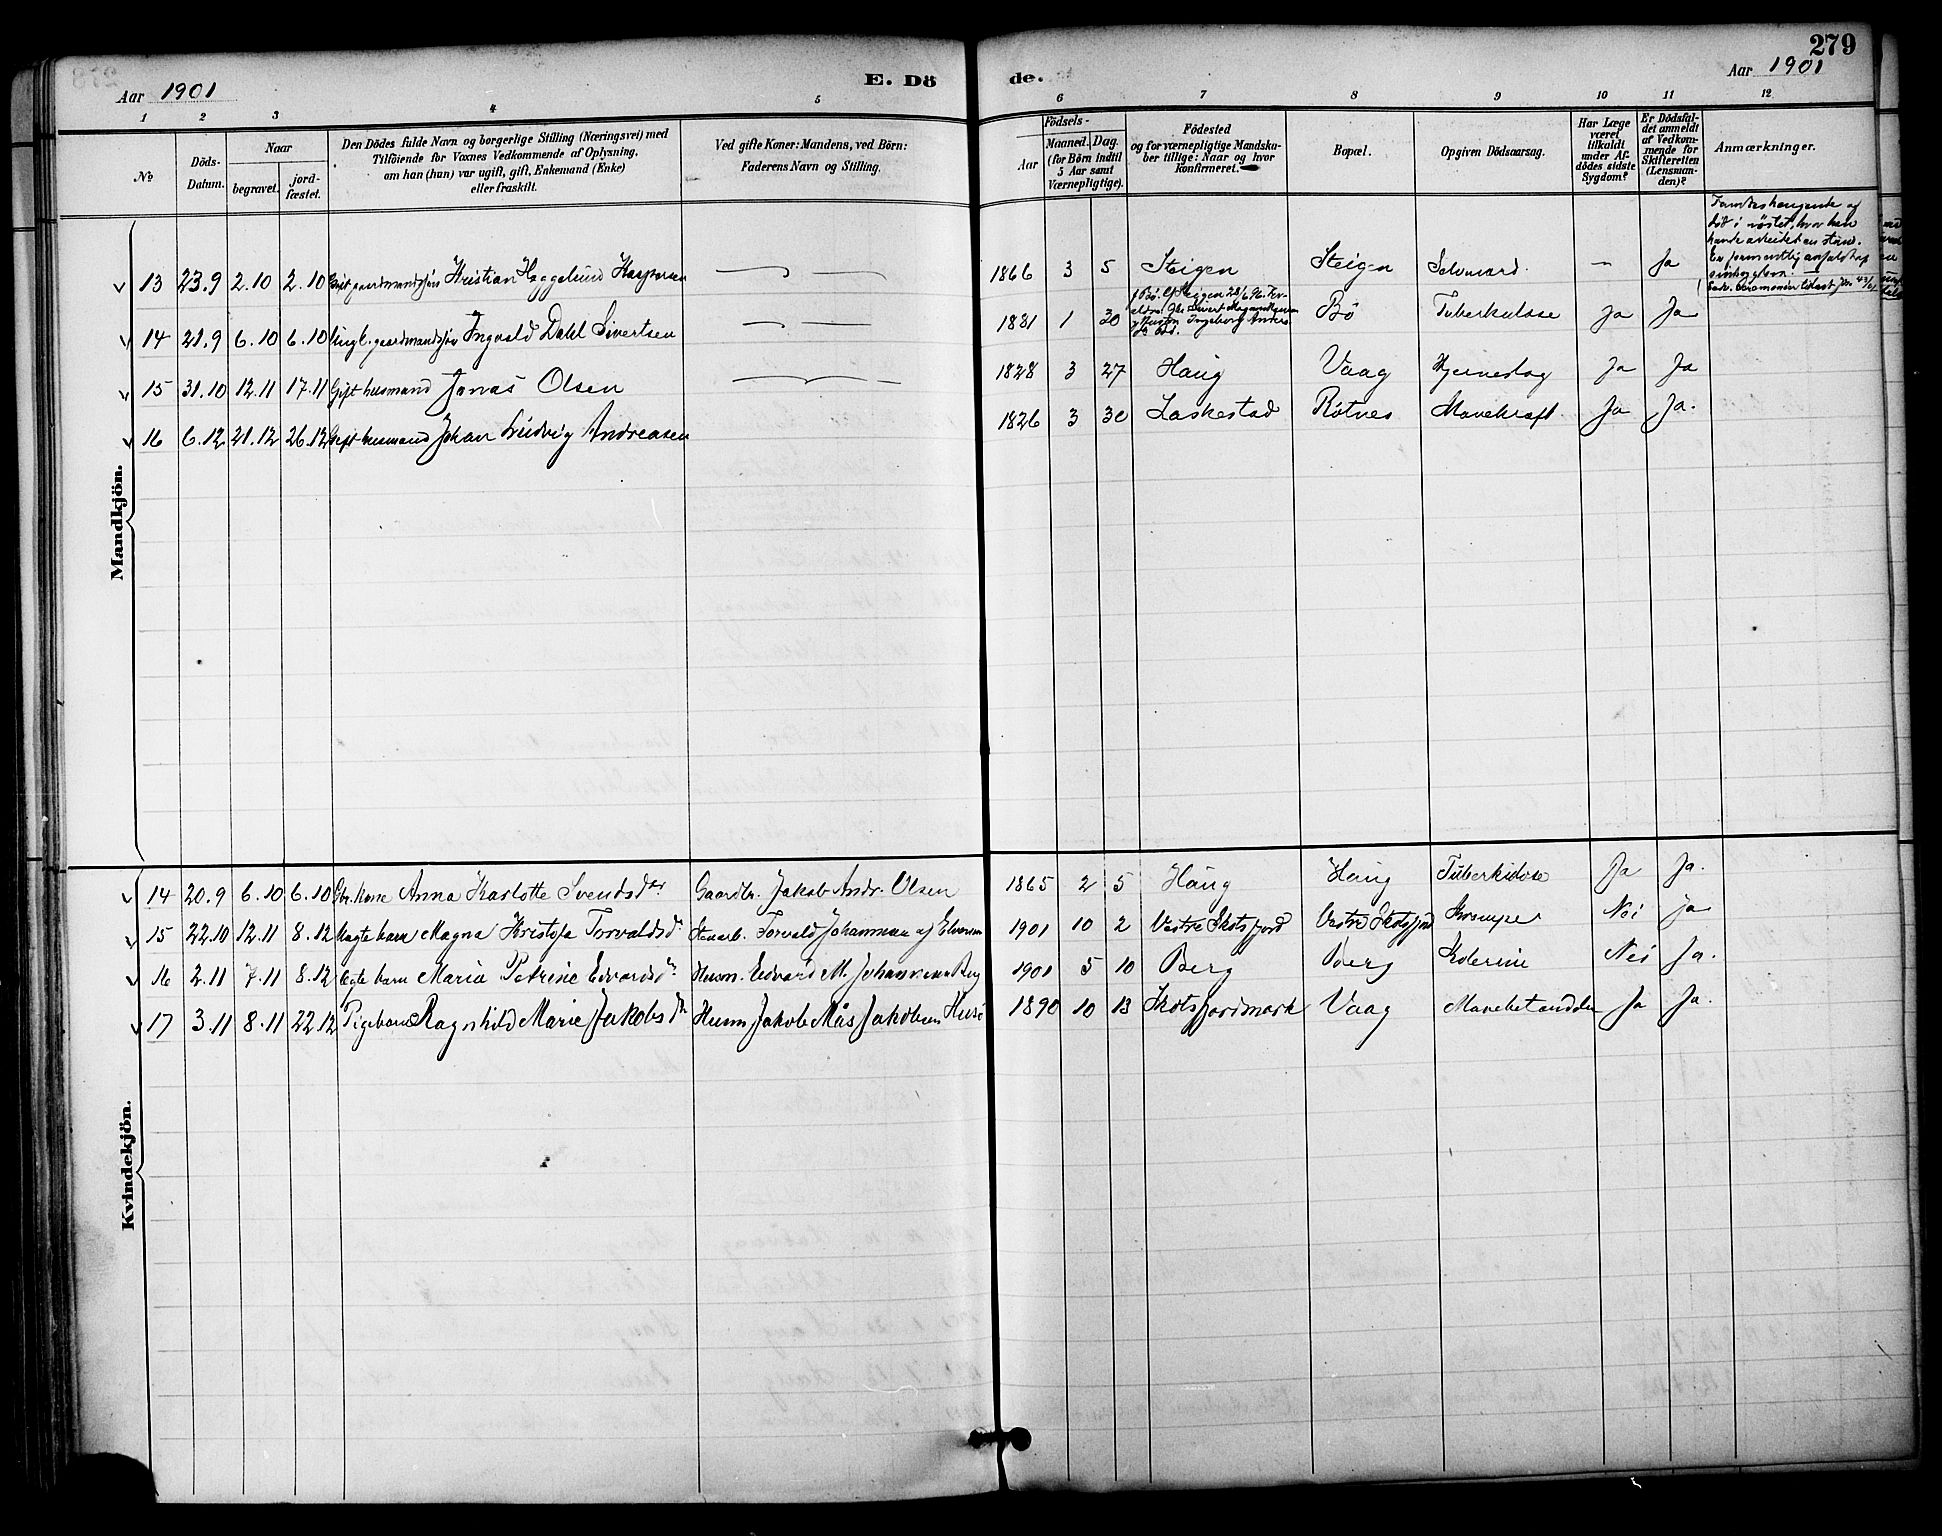 279
Aar 1901
E. Dö
de.
Aar 1901
1 2 3 4 5 6 7 8 9 10 11 12
No
Döds-Datum.
Naar
begravet.
jord-fæstet.
Den Dödes fulde Navn og borgerlige Stilling (Næringsvei) med
Tilföiende for Voxnes Vedkommende af Oplysning,
om han (hun) var ugift, gift, Enkemand (Enke)
eller fraskilt.
Ved gifte Koner: Mandens, ved Börn:
Faderens Navn og Stilling.
Födsels-
Aar
Maaned. Dag.
(for Börn indtil
5 Aar samt
Værnepligtige).
Födested
og for værnepligtige Mandska-
ber tillige: Naar og hvor
konfirmeret.
Bopæl.
Opgiven Dödsaarsag.
Har Læge
været
tilkaldt
under Af-
dödes sidste
Sygdom?
Er Dödsfal-
det anmeldt
af Vedkom-
mende for
Skifteretten
(Lensman-
den)?
Anmærkninger.
Mandkjön.
13 23.9 2.10 2.10 Gift gaardmandssøn Kristian Heggelund Kaspersen 1866 3 5 Steigen Steigen Selvmord. — Ja
Fandtes hængende og
död i nöstet, hvor han
havde arbeidet en stund.
14 21.9 6.10 6.10 Ungk. gaardmandssøn Ingvald Dahl Sivertsen 1881 1 30 Bö Tuberkulose Ja Ja
15 31.10 12.11 17.11 Gift husmand Jonas Olsen 1828 3 27 Haug Vaag Hjerneslag Ja Ja
16 6.12 21.12 26.12 Gift husmand Johan Ludvig Andreasen 1826 3 30 Laskestad Rötnes Mavekræft Ja Ja.
Kvindekjön.
14 20.9 6.10 6.10 Anna Karlotte Svendsdtr Gaardbr. Jakob Andr. Olsen 1865 2 5 Haug Haug Tuberkulose Ja Ja.
15 22.10 12.11 8.12 Uægte barn Magna Kristofa Torvaldsdr Torvald Johannesen af 1901 10 2 Vestre Skotsfjord Vestre Skotsfjord Krampe Nei Ja
16 2.11 7.11 8.12 Ægte barn Maria Petrine Edvardsdr Husm. Edvard M. Johannesen Berg 1901 5 10 Berg Berg Kolerine Nei Ja.
17 3.11 8.11 22.12 Pigebarn Ragnhild Marie Jakobsdr Husm Jakob Mås Jakobsen Husö 1890 10 13 Skotsfjordmark Vaag Ja Ja.